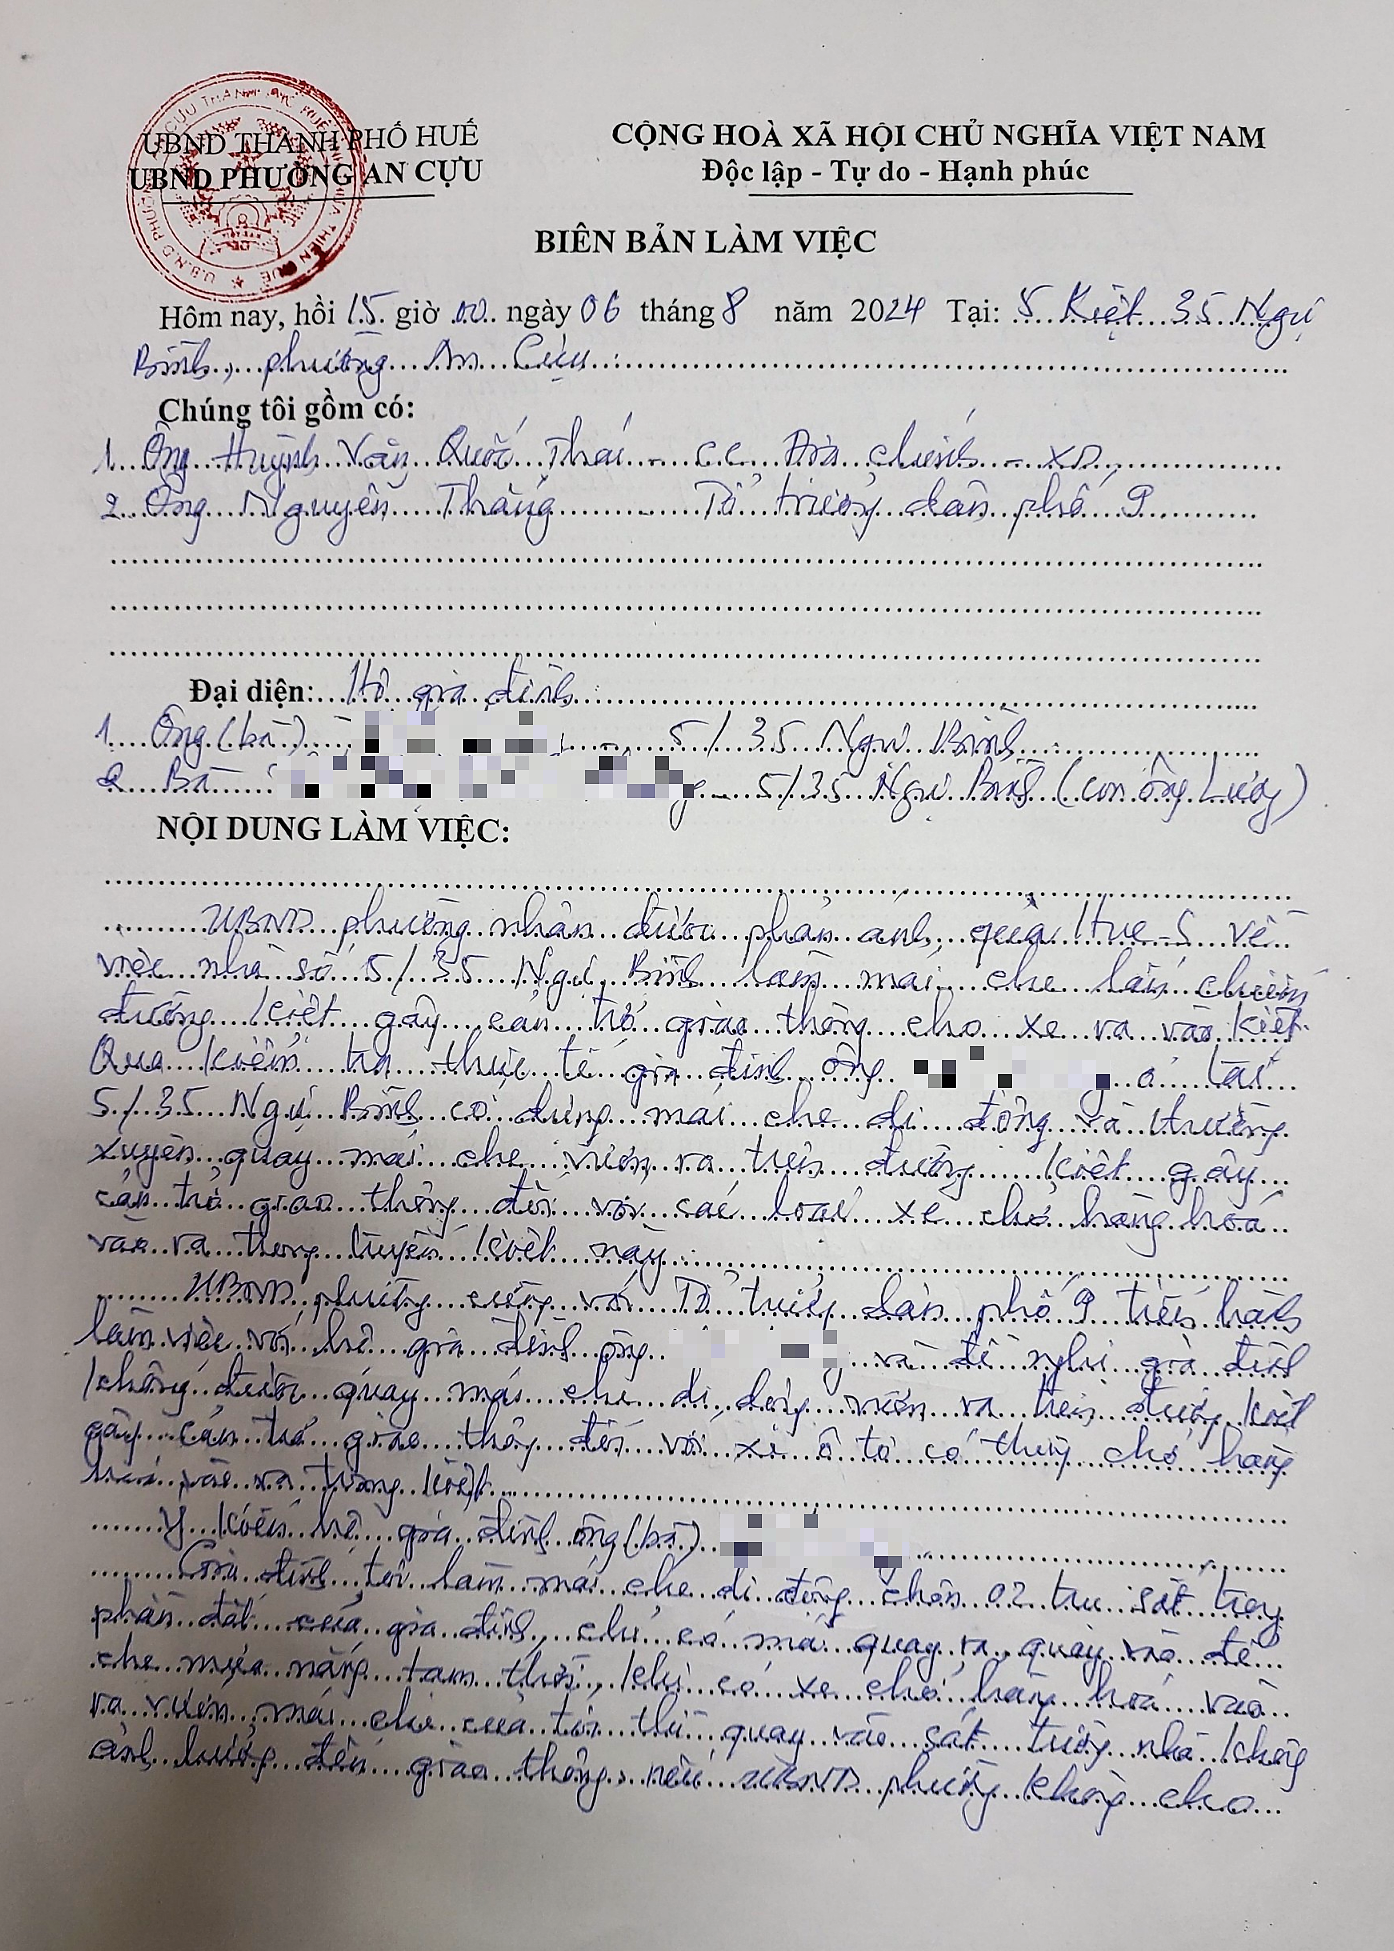 UBND THÀNH PHỐ HUẾ
UBND PHƯỜNG AN CỰU
CỘNG HOÀ XÃ HỘI CHỦ NGHĨA VIỆT NAM
Độc lập - Tự do - Hạnh phúc
BIÊN BẢN LÀM VIỆC
Hôm nay, hồi 15 giờ 00 ngày 06 tháng 8 năm 2024 Tại: 5 Kiệt 35 Ngự
Bình, phường An Cựu
Chúng tôi gồm có:
1. Ông Huỳnh Văn Quốc Thái - CC Địa chính - XD
2. Ông Nguyễn Thăng Tổ trưởng dân phố 9
Đại diện: Hộ gia đình
1. Ông (bà) 5/35 Ngự Bình
2. Bà 5/35 Ngự Bình (con ông Lương)
NỘI DUNG LÀM VIỆC:
UBND phường nhận được phản ánh qua Hue-S về
việc nhà số 5/35 Ngự Bình làm mái che lấn chiếm
đường kiệt gây cản trở giao thông cho xe ra vào kiệt.
Qua kiểm tra thực tế gia đình ông ở tại
5/35 Ngự Bình có dựng mái che di động và thường
xuyên quay mái che vươn ra trên đường kiệt gây
cản trở giao thông đối với các loại xe chở hàng hoá
vào ra trong tuyến kiệt này.
UBND phường cùng với Tổ trưởng dân phố 9 tiến hành
làm việc với hộ gia đình ông và đề nghị gia đình
không được quay mái che di động vươn ra trên đường kiệt
gây cản trở giao thông đối với xe ô tô có thùng chở hàng
hoá vào ra trong kiệt.
Ý kiến hộ gia đình ông (bà)
Gia đình tôi làm mái che di động chôn 02 trụ sắt trong
phần đất của gia đình, chỉ có mái quay ra quay vào để
che mưa nắng tạm thời, khi có xe chở hàng hoá vào
ra vướn mái che của tôi thì quay vào sát tường nhà không
ảnh hưởng đến giao thông, nếu UBND phường không cho